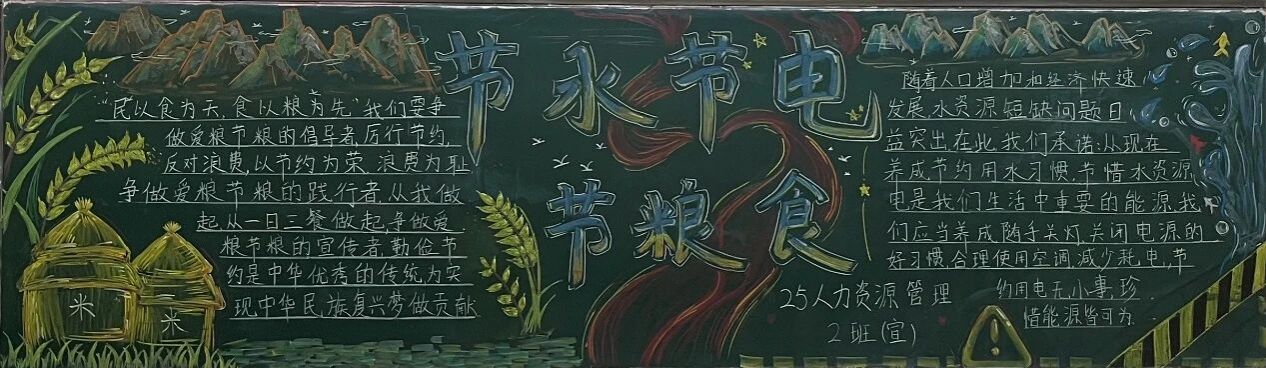 节水节电
节粮食
"民以食为天,食以粮为先"我们要争
做爱粮节粮的倡导者,厉行节约,
反对浪费,以节约为荣,浪费为耻
争做爱粮节粮的践行者,从我做
起从一日三餐做起,争做爱
粮节粮的宣传者,勤俭节
约是中华优秀的传统,为实
现中华民族复兴梦做贡献
米
米
随着人口增加和经济快速
发展,水资源短缺问题日
益突出,在此,我们承诺:从现在
养成节约用水习惯,节惜水资源,
电是我们生活中重要的能源,我
们应当养成随手关灯,关闭电源的
好习惯,合理使用空调,减少耗电,节
约用电无小事,珍
惜能源皆可为.
25人力资源管理
2班(宣)